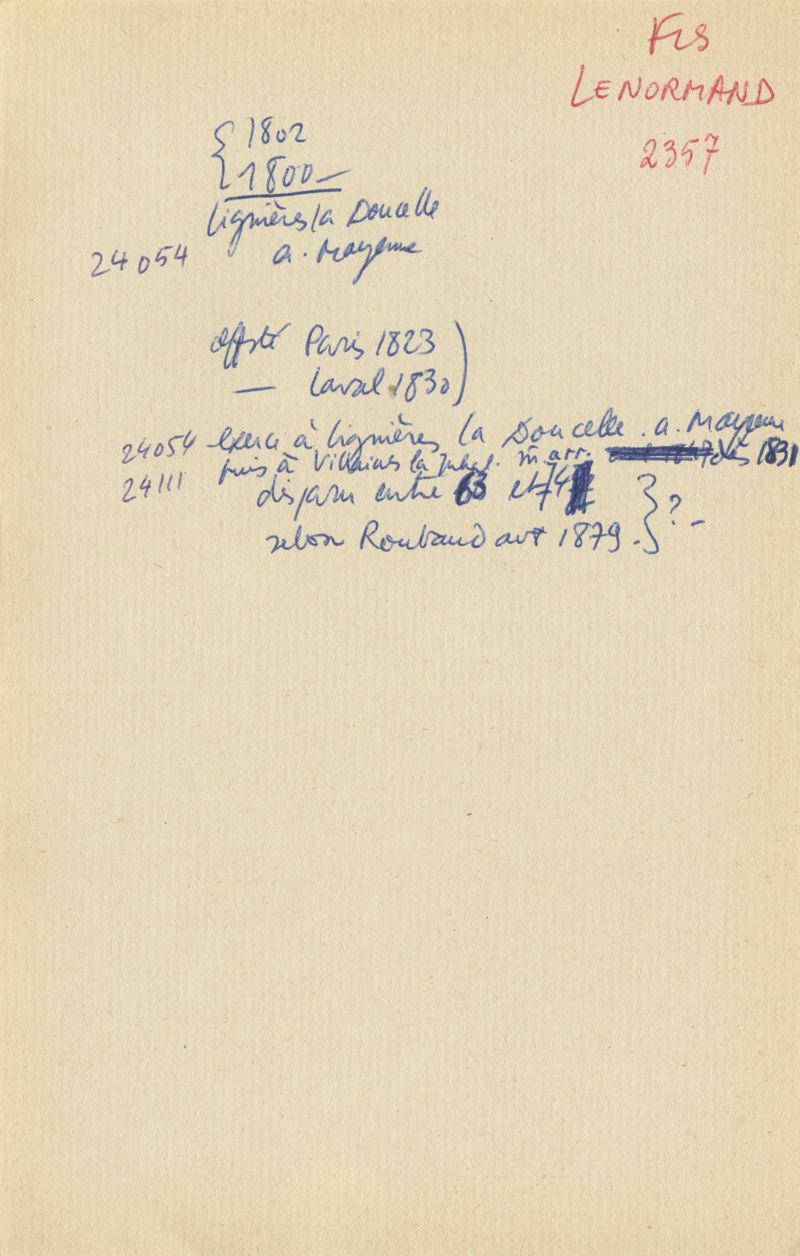 Fcs
LENORMAND
2357
{ 1802
1800 —
Lignières la Doucelle
24054 a. Mayenne
Paris 1823 )
— Laval 1830
24054 exerce à Lignières la Doucelle . a. Mayenne
24111 puis à Villaines la Juhel. m̄ arr. dès 1831
disparu entre 63 et 74 } ? –
selon Roubaud avt 1879 .